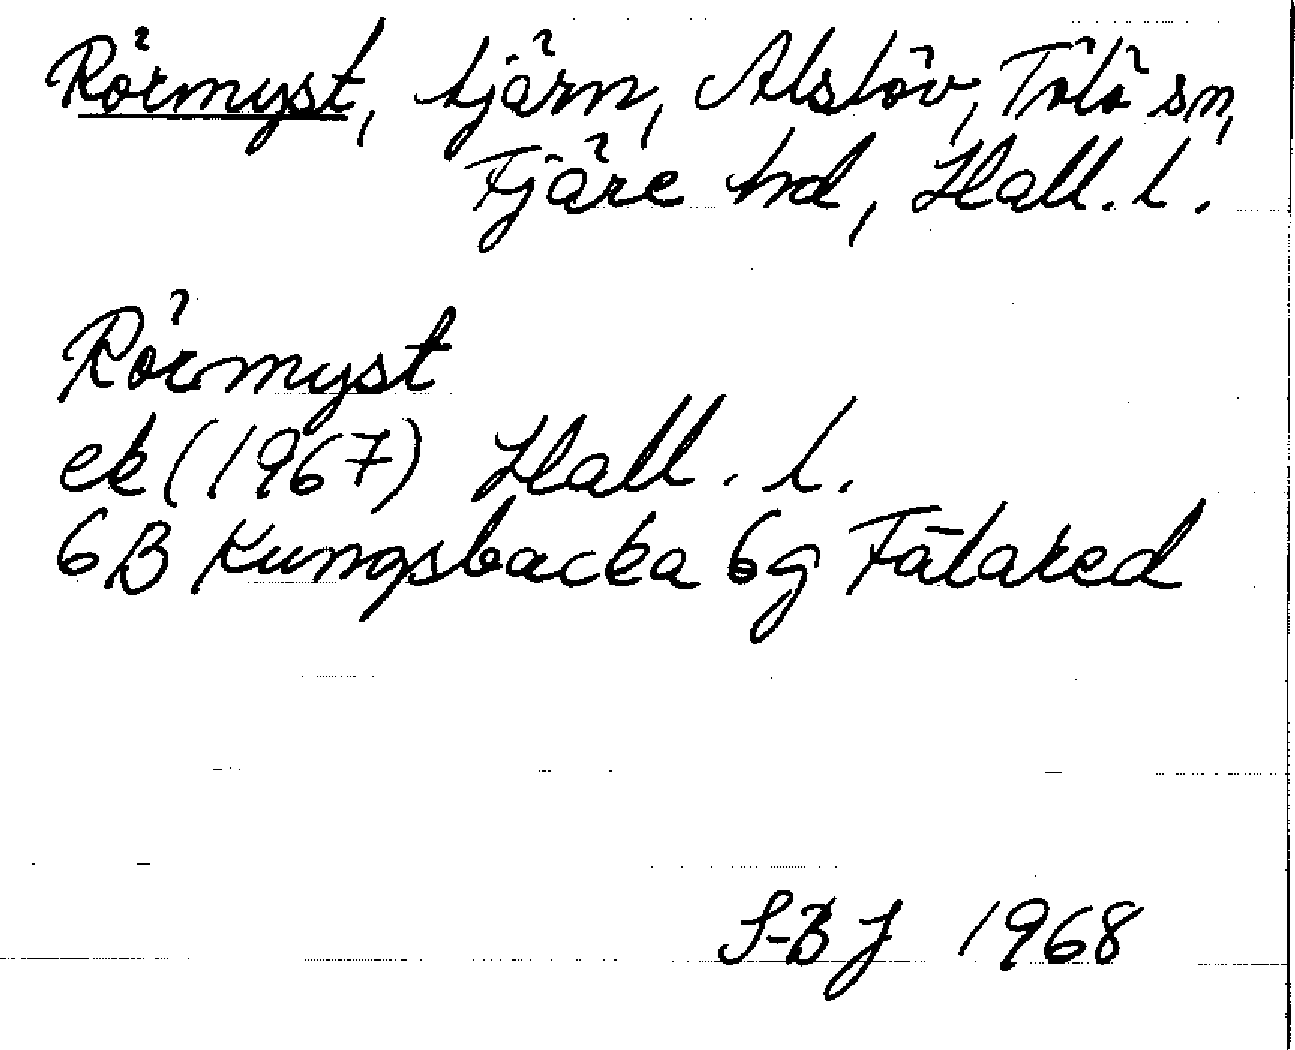 Rörmyst, tjärn, Alslöv, Tölö sn,
Fjäre hd, Hall. l.
Rörmyst
ek (1967) Hall. l.
6B Kungsbacka 6g Fälared
S-BJ 1968